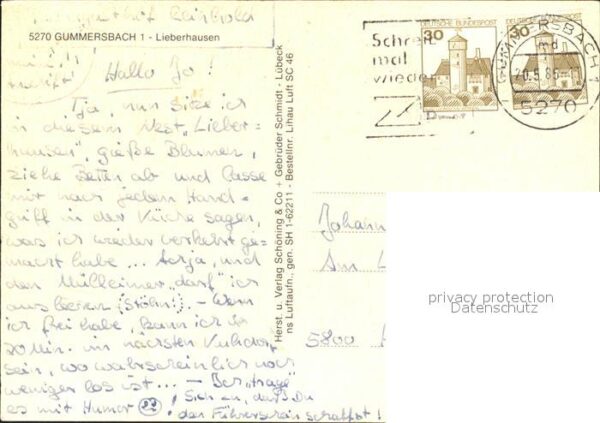 5270 GUMMERSBACH 1 - Lieberhausen
Hallo Jo!
Tja, nun sitze ich
in diesem Nest „Lieber-
hausen“, gieße Blumen,
ziehe Betten ab und lasse
mir nach jedem Hand-
griff in der Küche sagen,
was ich wieder verkehrt ge-
macht habe ... Achja, und
den Mülleimer „darf“ ich
ausleeren (Stöhn!). - Wenn
ich frei habe, kann ich in
20 Min. im nächsten Kuhdorf
sein, wo wahrscheinlich noch
weniger los ist ... -
es mit Humor
! Sieh zu, daß Du
den Führerschein schaffst!
Herst. u. Verlag Schöning & Co + Gebrüder Schmidt · Lübeck
ns Luftaufn., gen. SH 1-62211 - Bestellnr. Lihau Luft SC 46
Schreib
mal
wieder
DEUTSCHE BUNDESPOST
30
DEUTSCHE BUNDESPOST
30
GUMMERSBACH 1
md
20.5.86
5270
Johann
Am
5800
privacy protection
Datenschutz